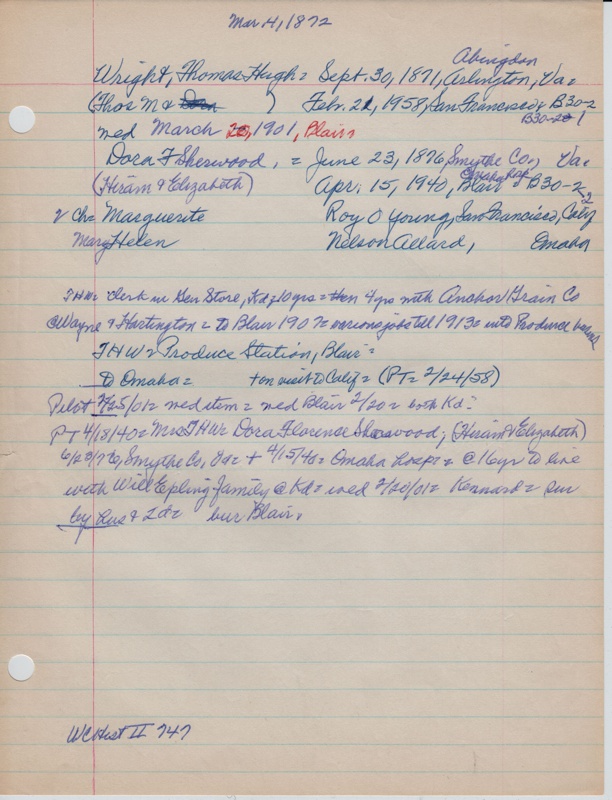 Mar. 4, 1872
Abingdon
Wright, Thomas Hugh = Sept. 30, 1871, Arlington, Va =
(Thos M & Dora ) Febr. 21, 1958, San Francisco & B30-2
B30-20 1
med March 20, 1901, Blair
Dora F Sherwood, = June 23, 1876, Smythe Co, Va.
Omaha
(Hiram & Elizabeth) Apr. 15, 1940, Blair & B30-2
2
2 ch = Marguerite Roy O Young, San Francisco, Calif
Mary Helen Nelson Allard, Omaha
THW = Clerk in Gen Store, Kd = 10 yrs = then 4 yrs with Anchor Grain Co
@ Wayne & Hartington = to Blair 1907 = various jobs till 1913 = into Produce
THW = Produce Station, Blair =
to Omaha = + on visit to Calif = (PT = 2/24/58)
Pilot 2/25/01 = med item = med Blair 2/20 = both Kd =
PT 4/18/40 = Mrs THW Dora Florence Sherwood, (Hiram & Elizabeth)
6/23/76, Smythe Co, Va = + 4/15/40 = Omaha hosp = @ 16 yr to live
with Will Epling family @ Kd = wed 2/20/01 = Kennard = sur
by hus & 2 d = bur Blair.
WC Hist II 747